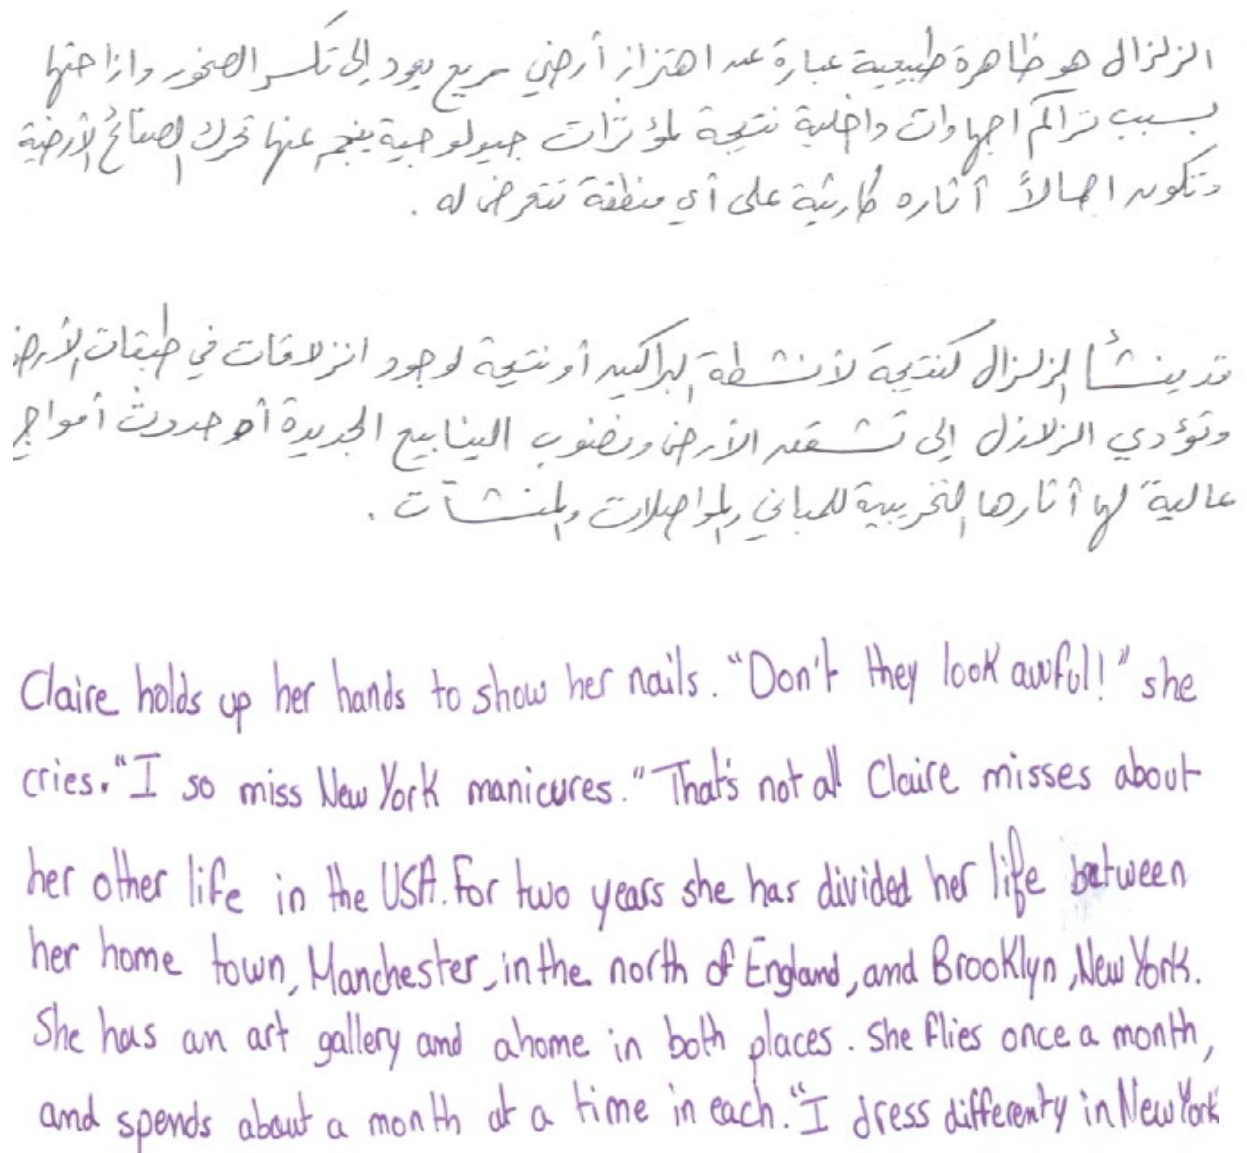 الزلزال هو ظاهرة طبيعية عبارة عن اهتزاز أرضي سريع يعود إلى تكسر الصخور وازاحتها
بسبب تراكم اجهادات داخلية نتيجة لمؤثرات جيولوجية ينجم عنها تحرك الصفائح الأرضية
وتكون اجمالاً آثاره كارثية على أي منطقة تتعرض له .
قد ينشأ الزلزال كنتيجة لأنشطة البراكين أو نتيجة لوجود انزلاقات في طبقات الأرض
وتؤدي الزلازل إلى تشقق الأرض ونضوب الينابيع الجديدة أو حدوث أمواج
عالية لها آثارها التخريبية للمباني والمواصلات والمنشآت .
Claire holds up her hands to show her nails. "Don't they look awful!" she
cries. "I so miss New York manicures." That's not all Claire misses about
her other life in the USA. For two years she has divided her life between
her home town, Manchester, in the north of England, and Brooklyn, New York.
She has an art gallery and ahome in both places. She flies once a month,
and spends about a month at a time in each. "I dress differenty in New York